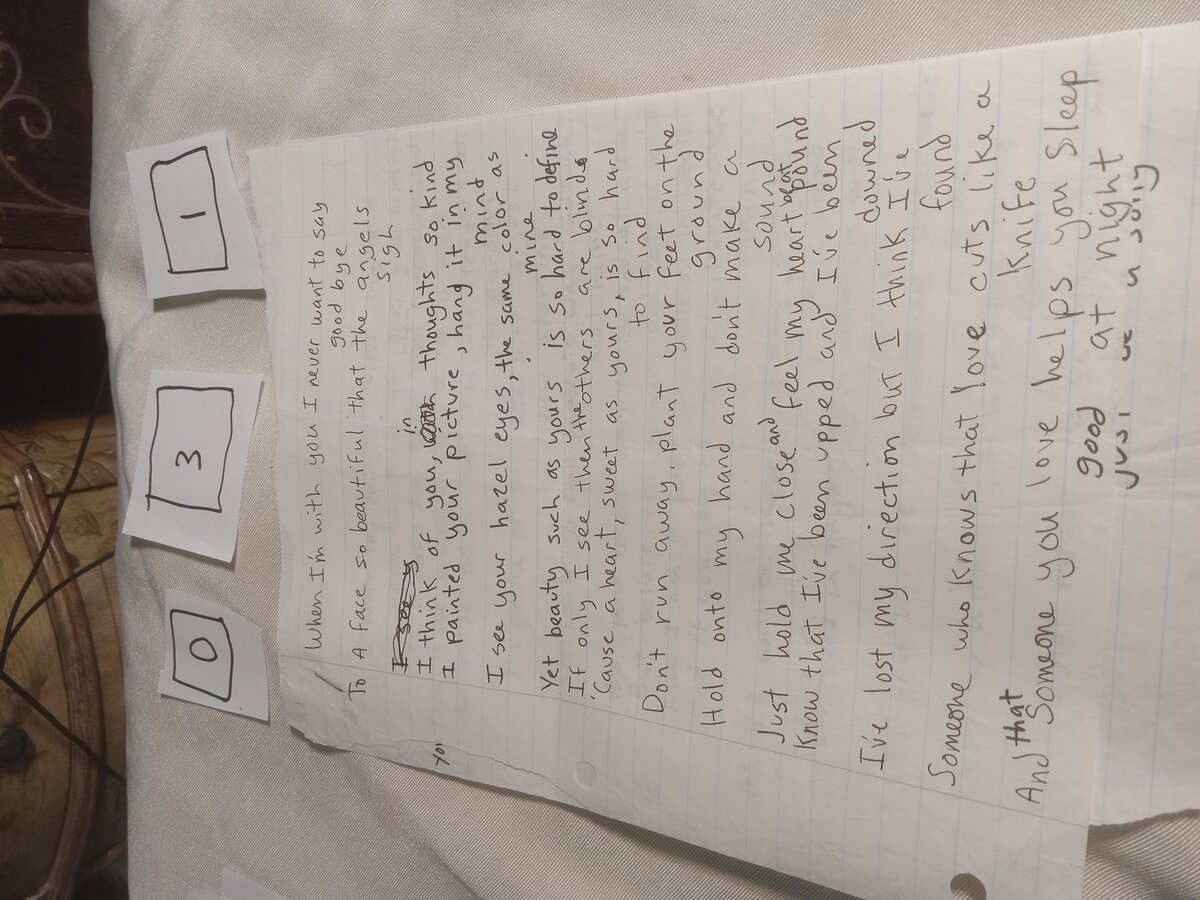 0 3 1
When I'm with you I never want to say
good bye
To A face so beautiful that the angels
sigh
I think of you, in thoughts so kind
I painted your picture, hang it in my
mind
I see your hazel eyes, the same color as
mine
Yet beauty such as yours is so hard to define
If only I see then the others are blind
'Cause a heart, sweet as yours, is so hard
to find
Don't run away, plant your feet on the
ground
Hold onto my hand and don't make a
sound
Just hold me close and feel my heart beat pound
Know that I've been upped and I've been
downed
I've lost my direction but I think I've
found
Someone who knows that love cuts like a
knife
And that Someone you love helps you sleep
good at night